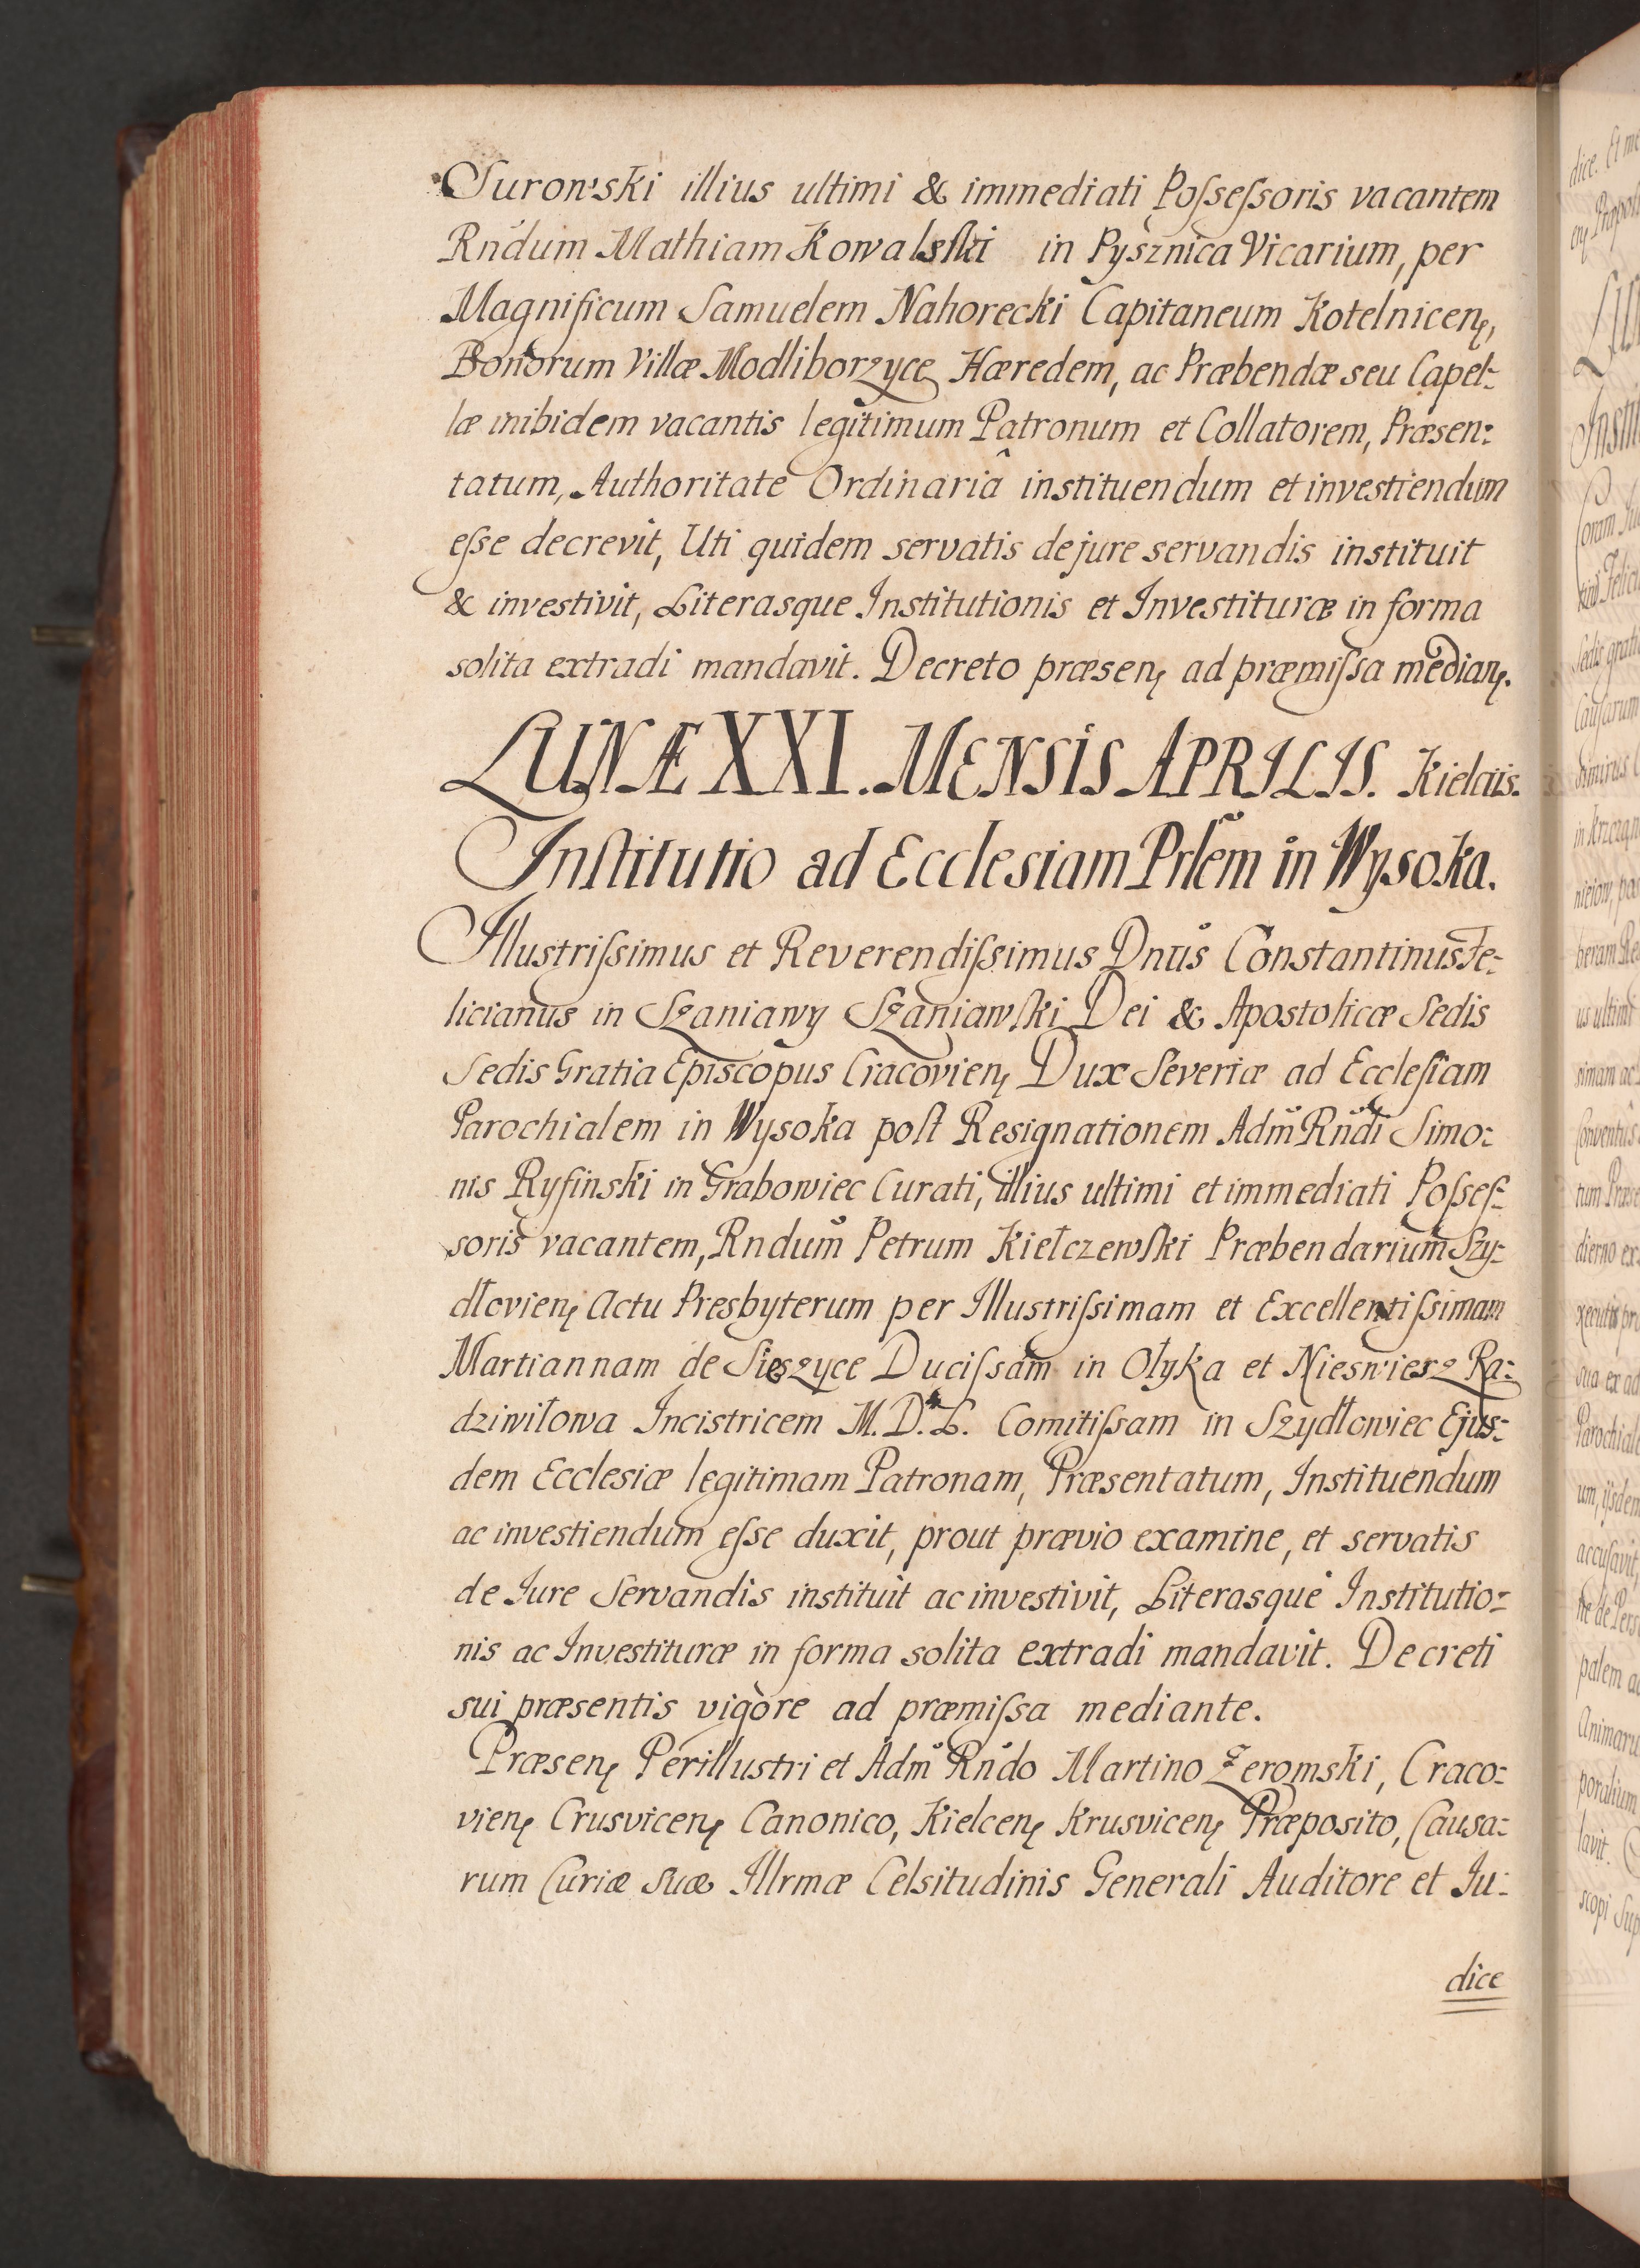 Surowski illius ultimi & immediati Poſseſsoris vacantem
Rńdum Mathiam Kowalsſki in Pysznica Vicarium, per
Magnificum Samuelem Nahorecki Capitaneum Kotelnicen,
Bonorum Villæ Modliborzyce Hæredem, ac Præbendæ seu Capel:
læ inibidem vacantis legitimum Patronum et Collatorem, Præsen:
tatum, Authoritate Ordinariâ instituendum et investiendum
eſse decrevit, Uti quidem servatis de jure servandis instituit
& investivit, Literasque Institutionis et Investituræ in forma
solita extradi mandavit. Decreto præsen ad præmiſsa median.
LUNÆ XXI. MENSIS APRILIS. Kielciis.
Inſtitutio ad Ecclesiam Prlem in Wysoka.
Illustriſsimus et Reverendiſsimus Dnus Constantinus Fe:
licianus in Szaniawy Szaniawſki Dei & Apostolicæ Sedis
Sedis Gratia Episcopus Cracovien Dux Severiæ ad Eccleſiam
Parochialem in Wysoka poſt Resignationem Adm Rndi Simo:
nis Ryſinski in Grabowiec Curati, illius ultimi et immediati Poſseſ:
soris vacantem, Rndum Petrum Kiełczewſki Præbendarium Szy:
dłovien Actu Presbyterum per Illustriſsimam et Excellentiſsimam
Martiannam de Sieszyce Duciſsam in Ołyka et Nieswierz Ra:
dziwiłowa Incistricem M. D. L. Comitiſsam in Szydłowiec Ejus:
dem Ecclesiæ legitimam Patronam, Præsentatum, Instituendum
ac investiendum eſse duxit, prout prævio examine, et servatis
de Iure Servandis instituit ac investivit, Literasque Institutio:
nis ac Investituræ in forma solita extradi mandavit. Decreti
sui præsentis vigore ad præmiſsa mediante.
Præsen Perillustri et Adm Rndo Martino Żeromski, Craco:
vien Crusvicen Canonico, Kielcen Krusvicen Præposito, Causa:
rum Curiæ Suæ Illrmæ Celsitudinis Generali Auditore et Iu:
dice